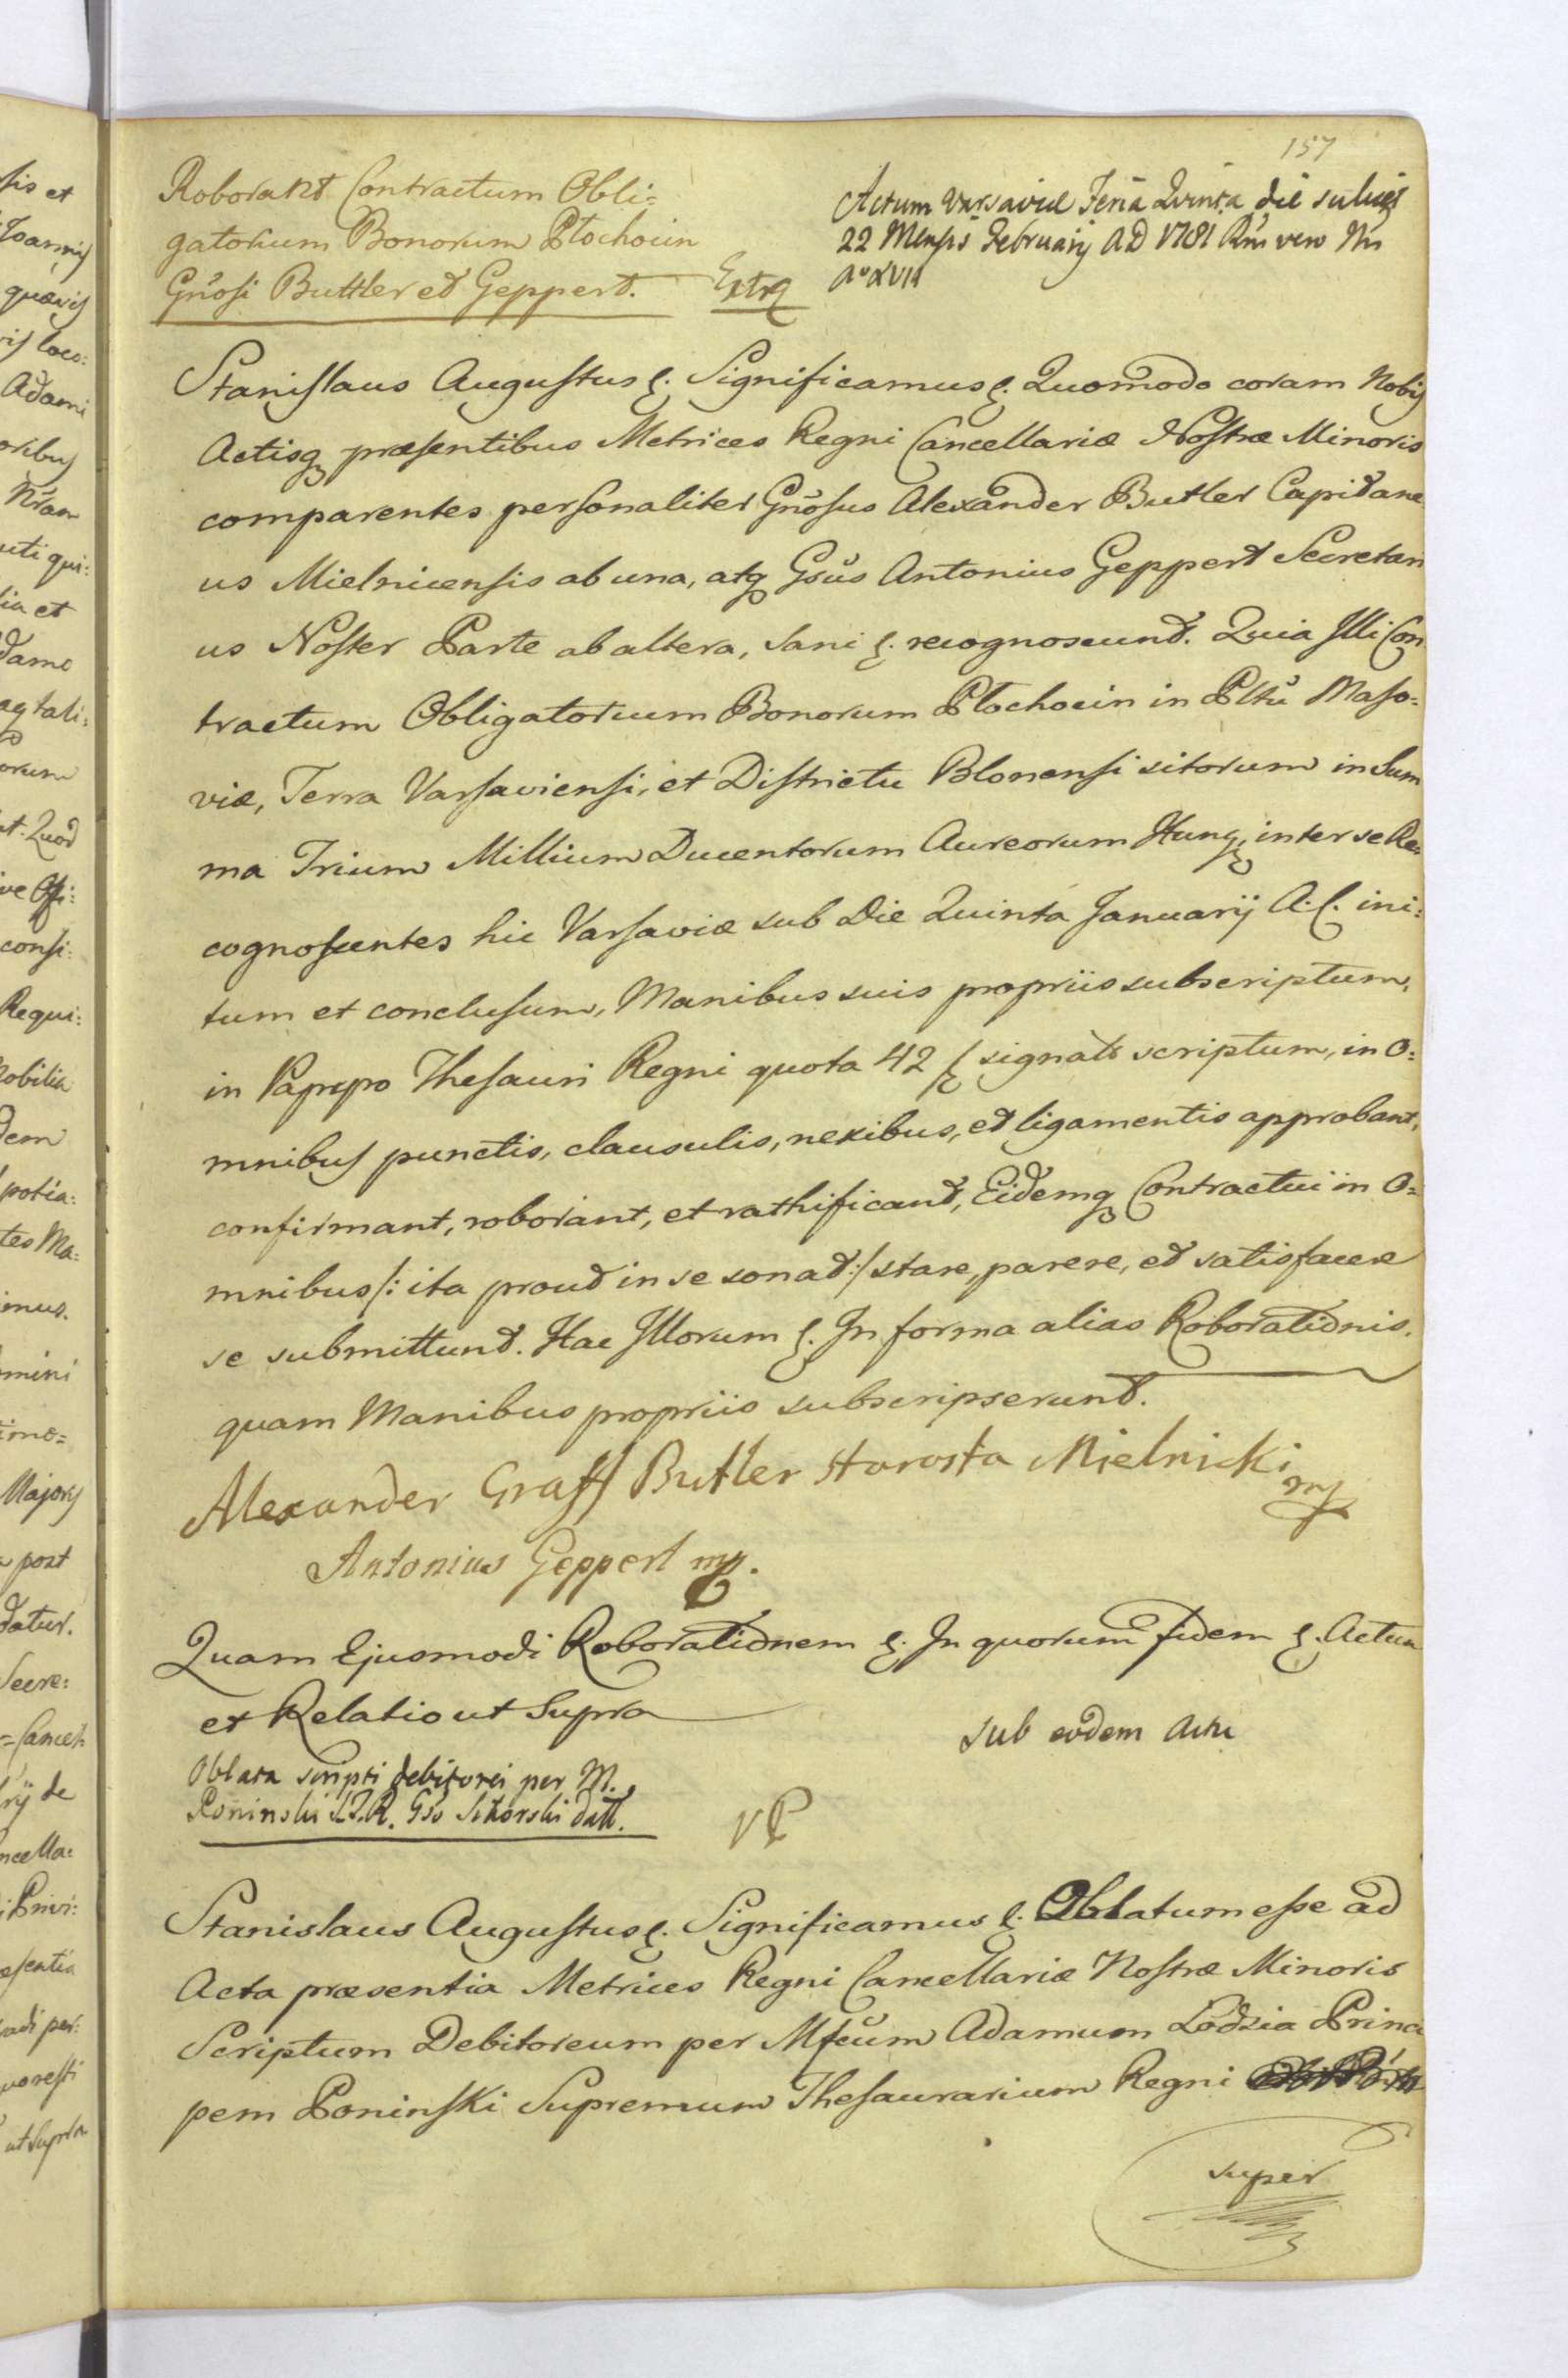 157
Roborant Contractum Obli=
gatorium Bonorum Płochocin
Gnõsi Buttler et Geppert. Extra
Actum Varsaviæ Feria Qvinta die scilicet
22 Mensis Februarij AD 1781 Rni vero Nri
Aº XVII
Stanislaus Augustus &. Significamus &. Quomodo coram Nobis
Actisq præsentibus Metrices Regni Cancellariæ Nostræ Minoris
comparentes personaliter Gnõsus Alexander Butler Capitane
us Mielnicensis ab una, atq Gsus Antonius Geppert Secretari
us Noster Parte ab altera, Sani &. recognoscunt. Quia Illi Con
tractum Obligatorium Bonorum Płochocin in Pltũ Maso=
viæ, Terra Varsaviensi, et Districtu Blonensi sitorum in Sum
ma Trium Millium Ducentorum Aureorum Hung; inter se Re=
cognoscentes hic Varsaviæ sub Die Quinta Januarij A. C. ini=
tum et conclusum, Manibus suis propriis subscriptum,
in Papyro Thesauri Regni quota 42 f signata scriptum, in O=
mnibus punctis, clausulis, nexibus, et ligamentis approbant,
confirmant, roborant, et rathificant, Eidemq Contractui in O=
mnibus /: ita prout in se sonat :/ stare, parere, et satisfacere
se submittunt. Hac Illorum &. In forma alias Roborationis.
quam Manibus propriis subscripserunt.
Alexander Graff Butler Starosta Mielnicki
mp
Antonius Geppert mp.
Quam Ejusmodi Roborationem &. In quorum fidem &. Actum
et Relatio ut Supra
sub eodem Actu
Oblata scripti debitorei per M.
Poninski S.T.R. Gso Sikorski datt.
VP
Stanislaus Augustus &. Significamus &. Oblatum esse ad
Acta præsentia Metrices Regni Cancellariæ Nostræ Minoris
Scriptum Debitoreum per Mfcũm Adamum Łodzia Princi
pem Poninski Supremum Thesaurarium Regni
super